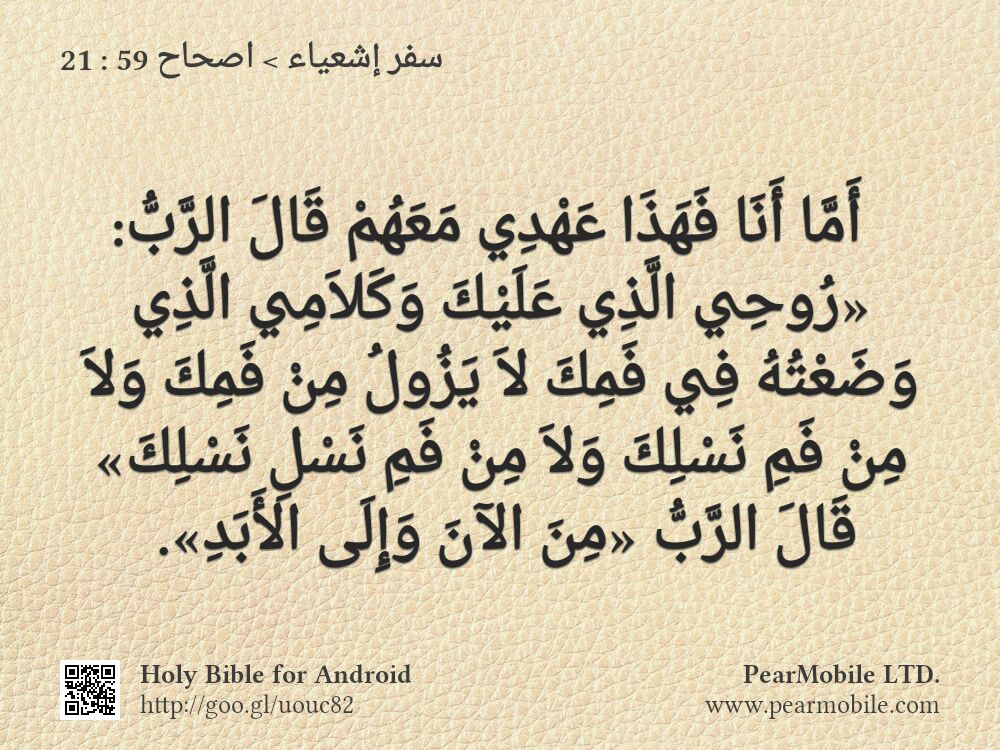 سفر إشعياء > اصحاح 59 : 21
أَمَّا أَنَا فَهَذَا عَهْدِي مَعَهُمْ قَالَ الرَّبُّ:
«رُوحِي الَّذِي عَلَيْكَ وَكَلاَمِي الَّذِي
وَضَعْتُهُ فِي فَمِكَ لاَ يَزُولُ مِنْ فَمِكَ وَلاَ
مِنْ فَمِ نَسْلِكَ وَلاَ مِنْ فَمِ نَسْلِ نَسْلِكَ»
قَالَ الرَّبُّ «مِنَ الآنَ وَإِلَى الأَبَدِ».
Holy Bible for Android
http://goo.gl/uouc82
PearMobile LTD.
www.pearmobile.com